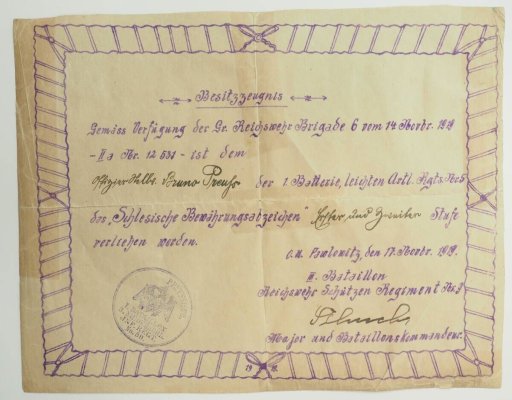 Besitzzeugnis
Gemäss Verfügung der Gr. Reichswehr Brigade 6 vom 14. Novbr. 1919
-II a Nr. 12 531 - ist dem
Offizier Stellv. Bruno Preuß der 1. Batterie, leichten Artl. Rgts. Nr. 5
das „Schlesische Bewährungsabzeichen" Erster und Zweiter Stufe
verliehen worden.
O.U. Pawlowitz, den 17. Novbr. 1919.
II. Bataillon
Reichswehr Schützen Regiment Nr. 9
Major und Bataillonskommandeur.
19